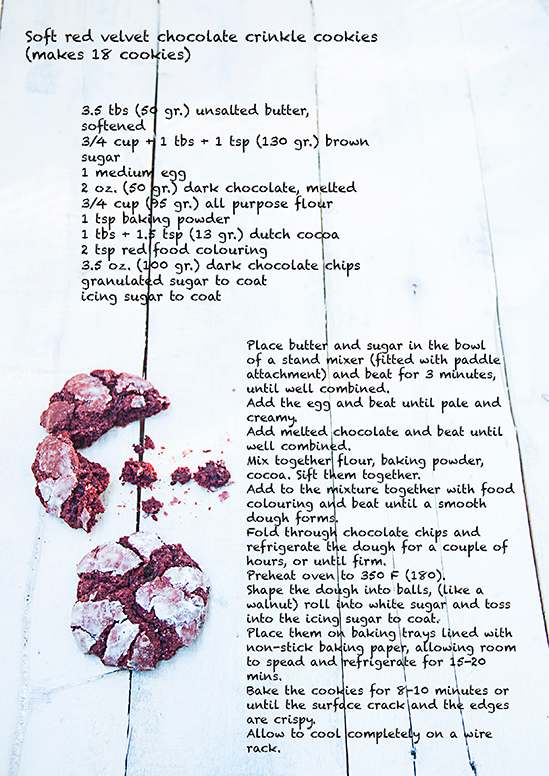 Soft red velvet chocolate crinkle cookies
(makes 18 cookies)
3.5 tbs (50 gr.) unsalted butter,
softened
3/4 cup + 1 tbs + 1 tsp (130 gr.) brown
sugar
1 medium egg
2 oz. (50 gr.) dark chocolate, melted
3/4 cup (95 gr.) all purpose flour
1 tsp baking powder
1 tbs + 1.5 tsp (13 gr.) dutch cocoa
2 tsp red food colouring
3.5 oz. (100 gr.) dark chocolate chips
granulated sugar to coat
icing sugar to coat
Place butter and sugar in the bowl
of a stand mixer (fitted with paddle
attachment) and beat for 3 minutes,
until well combined.
Add the egg and beat until pale and
creamy.
Add melted chocolate and beat until
well combined.
Mix together flour, baking powder,
cocoa. Sift them together.
Add to the mixture together with food
colouring and beat until a smooth
dough forms.
Fold through chocolate chips and
refrigerate the dough for a couple of
hours, or until firm.
Preheat oven to 350 F (180).
Shape the dough into balls, (like a
walnut) roll into white sugar and toss
into the icing sugar to coat.
Place them on baking trays lined with
non-stick baking paper, allowing room
to spead and refrigerate for 15-20
mins.
Bake the cookies for 8-10 minutes or
until the surface crack and the edges
are crispy.
Allow to cool completely on a wire
rack.